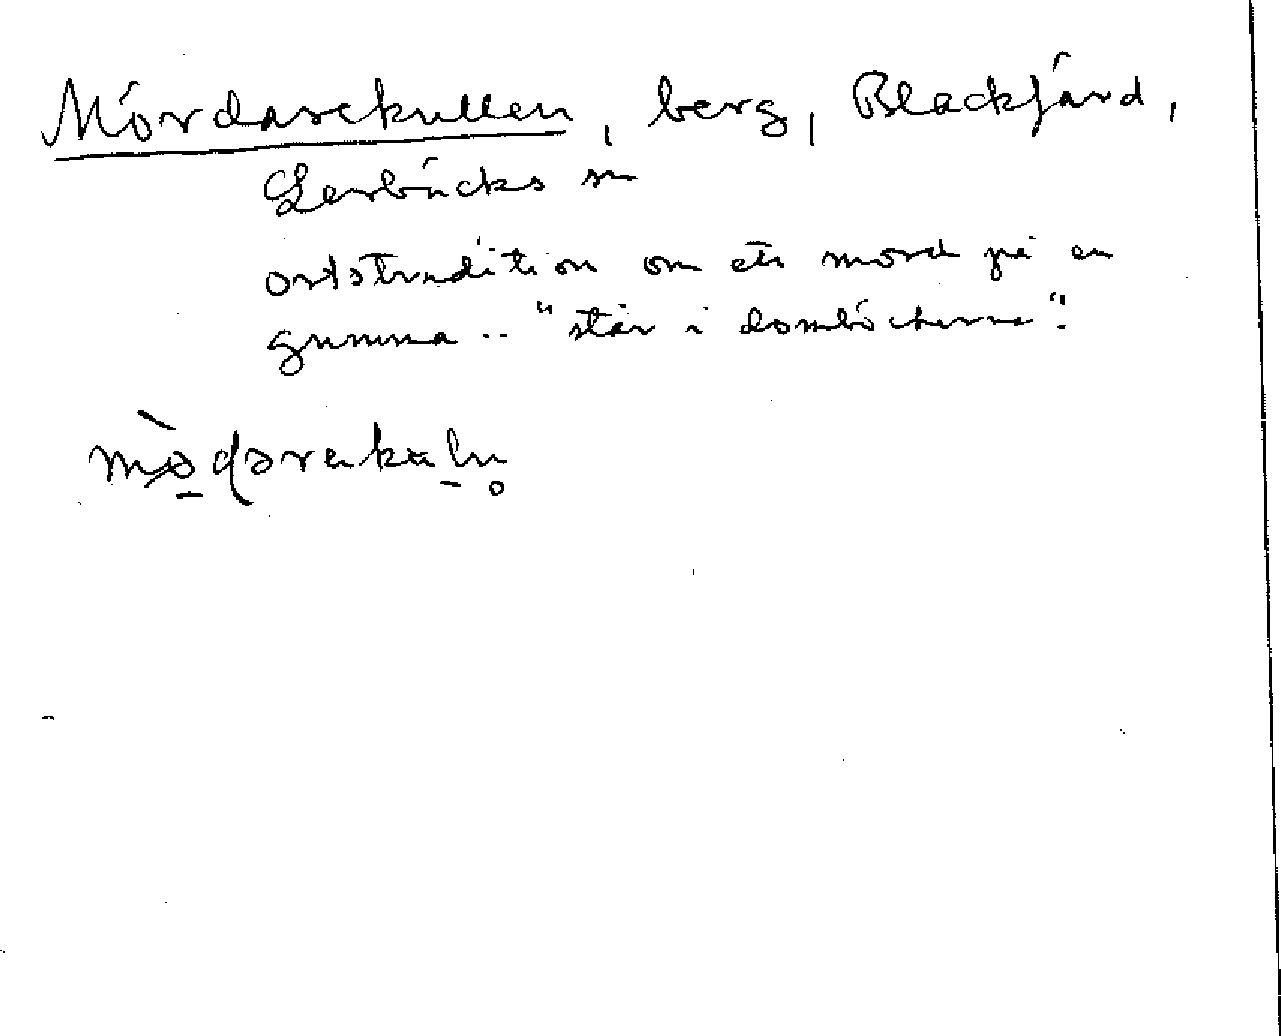 Mördarekullen, berg, Bleckfärd,
Lerbäcks sn
ortstradition om ett mord på en
gumma.. "står i domböckerna".